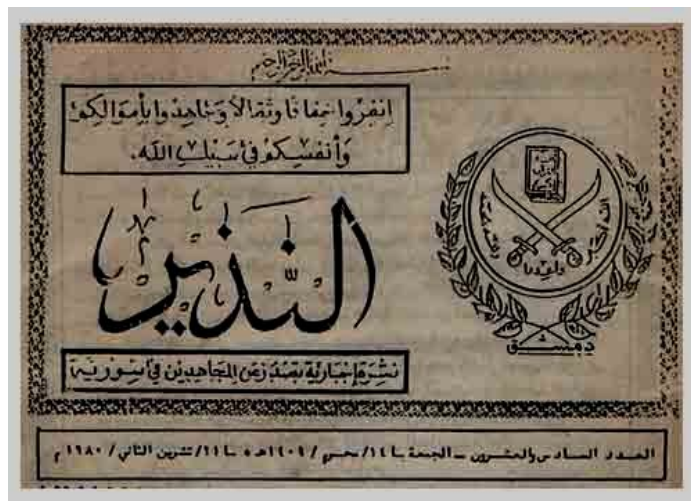 بسم الله الرحمن الرحيم
انفروا خفافا وثقالا وجاهدوا بأموالكم
وأنفسكم في سبيل الله.
النذير
نشرة إخبارية تصدر عن المجاهدين في سورية
الله أكبر
وأعدوا
دمشق
العدد السادس والعشرين - الجمعة - ١٤/ محرم / ١٤٠١هـ - ٢١/ تشرين الثاني / ١٩٨٠ م